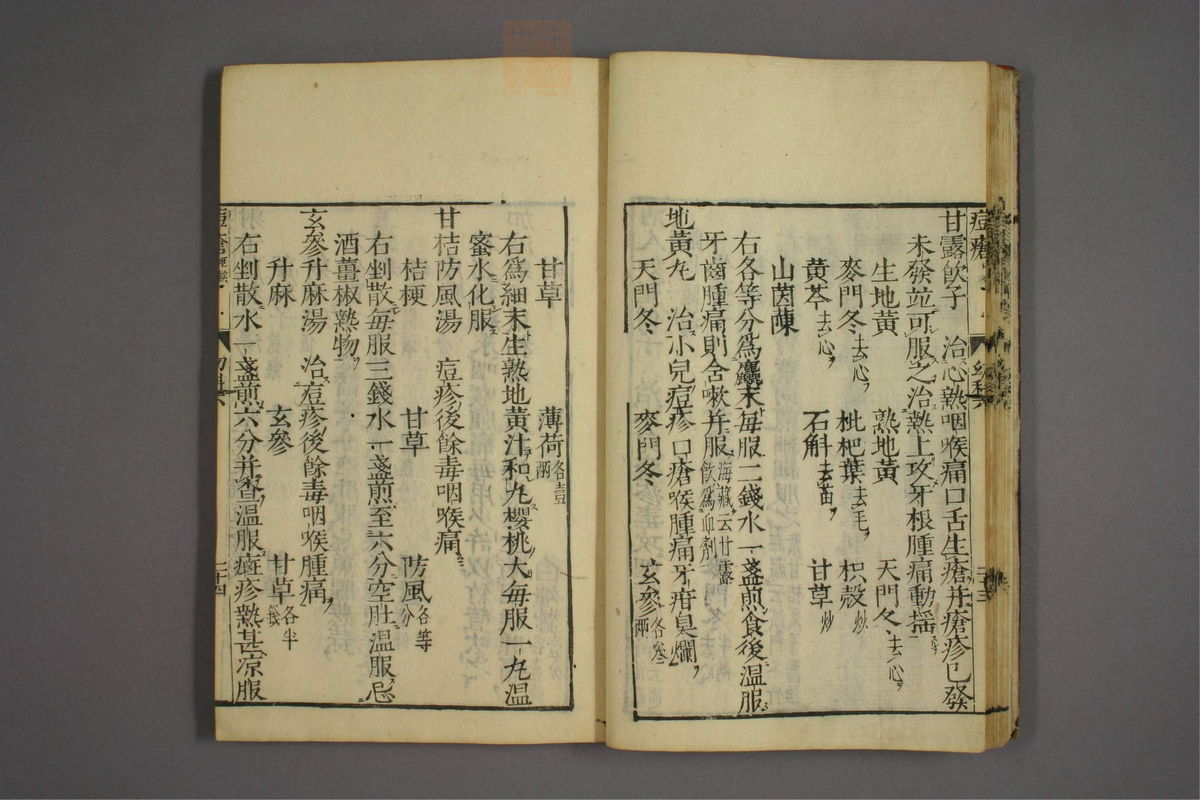 甘露飮子　治心熱咽喉痛口舌生瘡并瘡疹已發
未發並可服之治熱上攻牙根腫痛動搖
生地黃　熟地黃　天門冬去心
麥門冬去心　枇杷葉去毛　枳殼炒
黃芩去心　石斛去苗　甘草炒
山茵蔯
右各等分爲麤末每服二錢水一盞煎食後温服
牙齒腫痛則含嗽并服海藏云甘露飮爲血劑
地黃丸　治小兒痘疹口瘡喉腫痛牙疳臭爛
天門冬　麥門冬　玄參各叁兩
甘草　薄荷各壹兩
右爲細末生熟地黃汁和丸櫻桃大每服一丸温
蜜水化服
甘桔防風湯　痘疹後餘毒咽喉痛
桔梗　甘草　防風各等分
右剉散每服三錢水一盞煎至六分空肚温服忌
酒薑椒熱物
玄參升麻湯　治痘疹後餘毒咽喉腫痛
升麻　玄參　甘草各半錢
右剉散水一盞煎六分并滓温服痘疹熱甚凉服